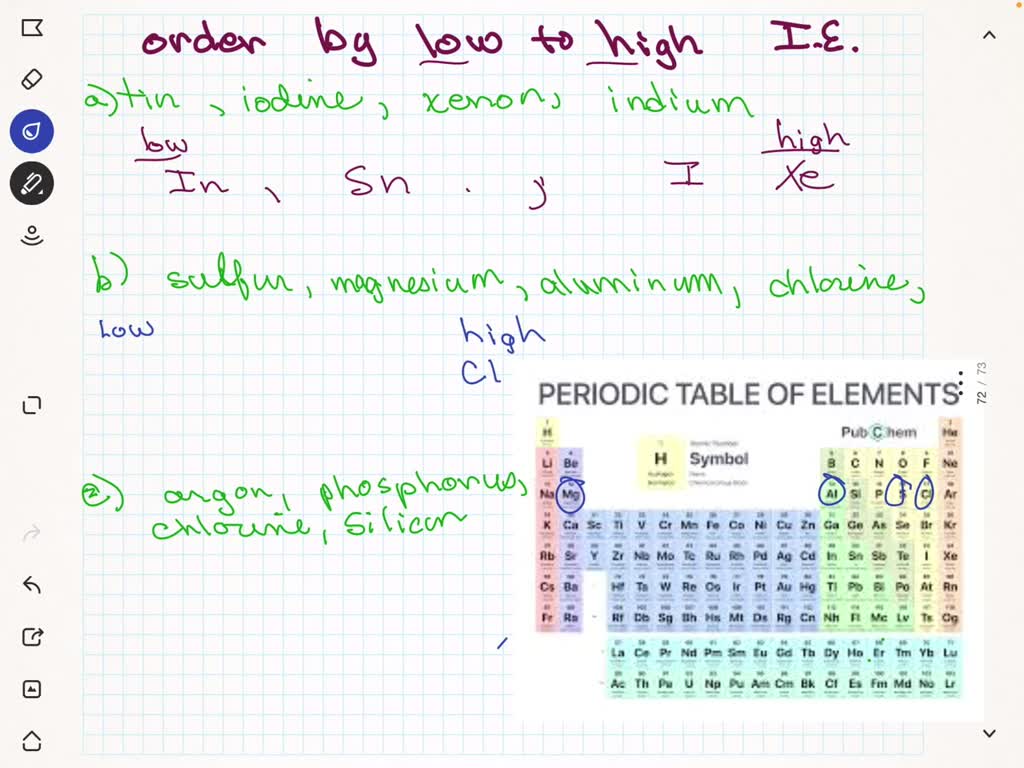 order by low to high I.E.
a) tin, iodine, xenon, indium
low high
In, Sn . , I Xe
b) sulfur, magnesium, aluminum, chlorine,
Low high
Cl
72 / 73
PERIODIC TABLE OF ELEMENTS
PubChem
H He
H Symbol
Li Be B C N O F Ne
Na Mg Al Si P S Cl Ar
K Ca Sc Ti V Cr Mn Fe Co Ni Cu Zn Ga Ge As Se Br Kr
Rb Sr Y Zr Nb Mo Tc Ru Rh Pd Ag Cd In Sn Sb Te I Xe
Cs Ba Hf Ta W Re Os Ir Pt Au Hg Tl Pb Bi Po At Rn
Fr Ra Rf Db Sg Bh Hs Mt Ds Rg Cn Nh Fl Mc Lv Ts Og
La Ce Pr Nd Pm Sm Eu Gd Tb Dy Ho Er Tm Yb Lu
Ac Th Pa U Np Pu Am Cm Bk Cf Es Fm Md No Lr
argon, phosphorus,
chlorine, Silicon